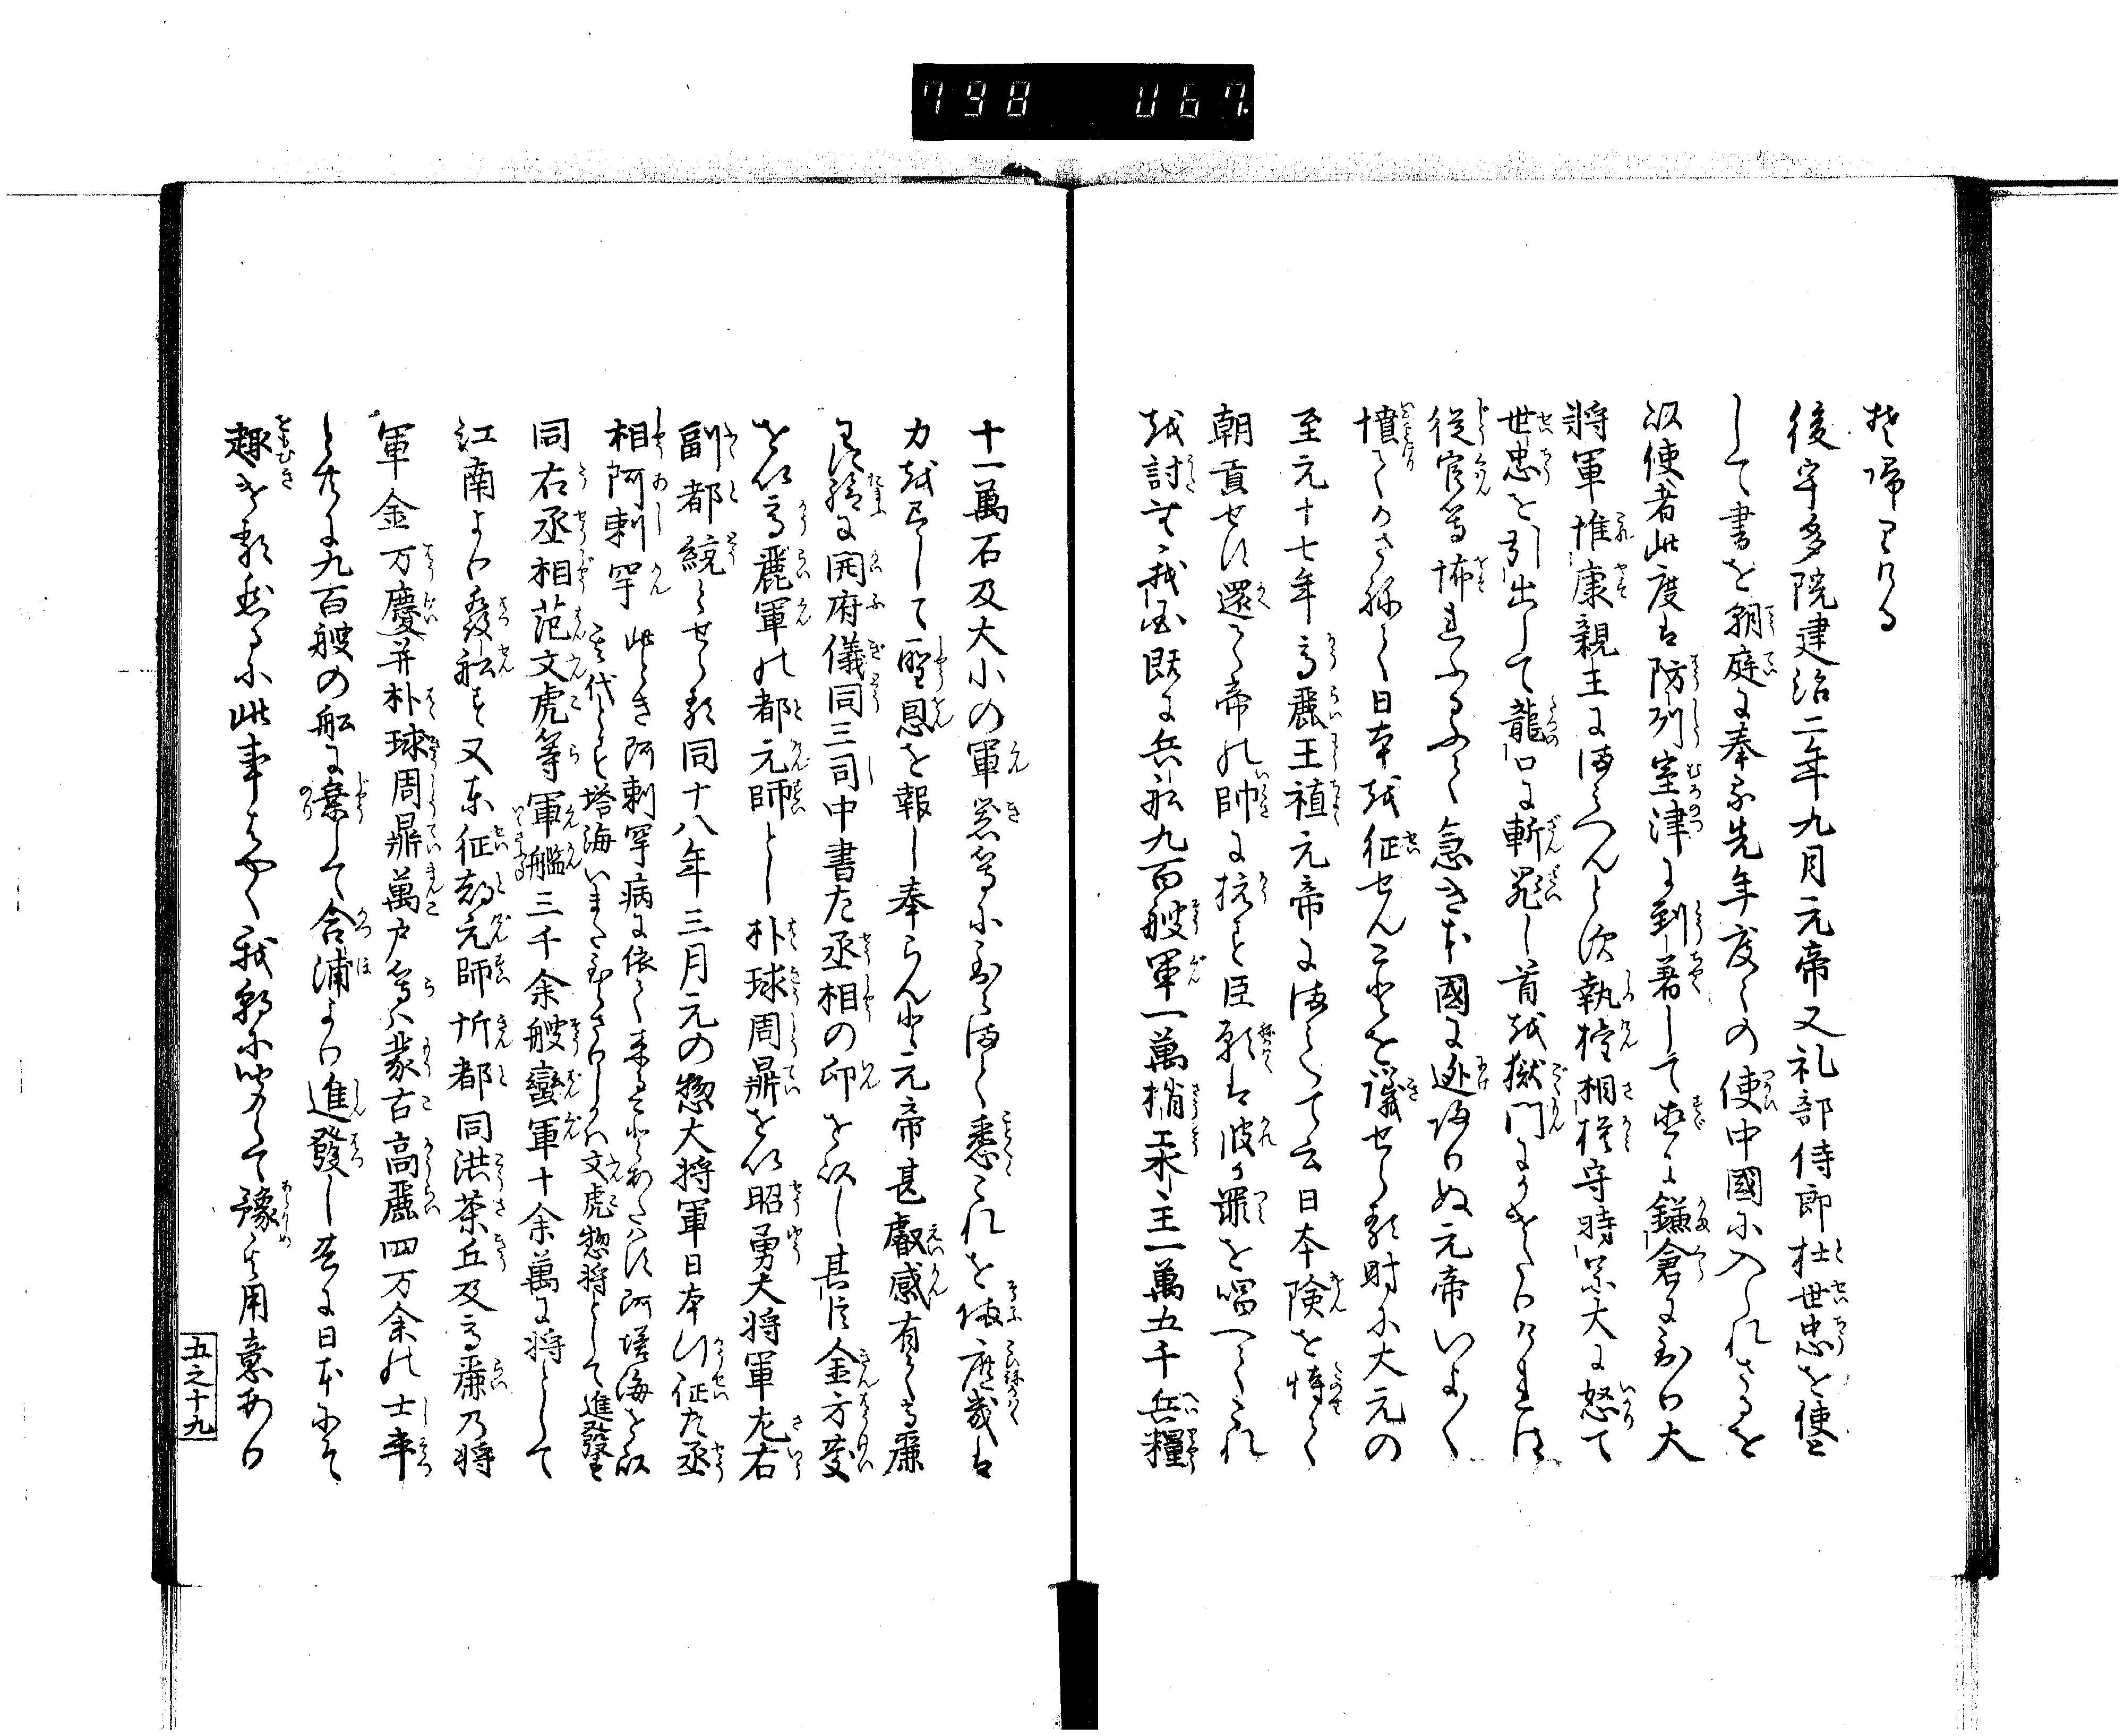 798 067
そ帰りける
後宇多院建治二年九月元帝又礼部侍郎杜世忠を使と
して書を朝庭に奉る先年度々の使中國に入られさるを
以使者此度は防州室津に到着して直に鎌倉に至り大
将軍惟康親王にまみへんと次執権相模守時宗大に怒て
世忠を引出して龍口に斬罪し首を獄門にかけたりければ
従官等怖れふるふて急き本國に逃返りぬ元帝いよ〳〵
憤てかさねて日本を征せんことを議せらる時に大元の
至元十七年高麗王植元帝にまみへて云日本険を恃て
朝貢せす還て帝の帥に抗す臣願は彼か罪を唱へてこれ
を討む我國既に兵舩九百艘軍一萬梢水主一萬五千兵糧
十一萬石及大小の軍器等に至るまて悉これを備庶幾は
力を尽して聖恩を報し奉らんと元帝甚叡感有て高麗
王に給に開府儀同三司中書左丞相の印を以し其臣金方慶
を以高麗軍の都元師とし朴球周鼎を以昭勇大将軍左右
副都統とせらる同十八年三月元の惣大将軍日本行征左丞
相阿剌罕 此とき阿剌罕病に依て来ることあたはす阿塔海を以
其代とす塔海いまた至らさりしかは文虎惣将として進發す
同右丞相范文虎等軍艦三千余艘蠻軍十余萬に将として
江南より發舩す又東征都元師忻都同洪茶丘及高麗乃将
軍金方慶并朴球周鼎萬户等は蒙古高麗四万余の士卒
と共に九百艘の舩に乗して合浦より進發し共に日本にそ
趣きける然るに此事はやく我朝に聞へて豫其用意あり
五之十九